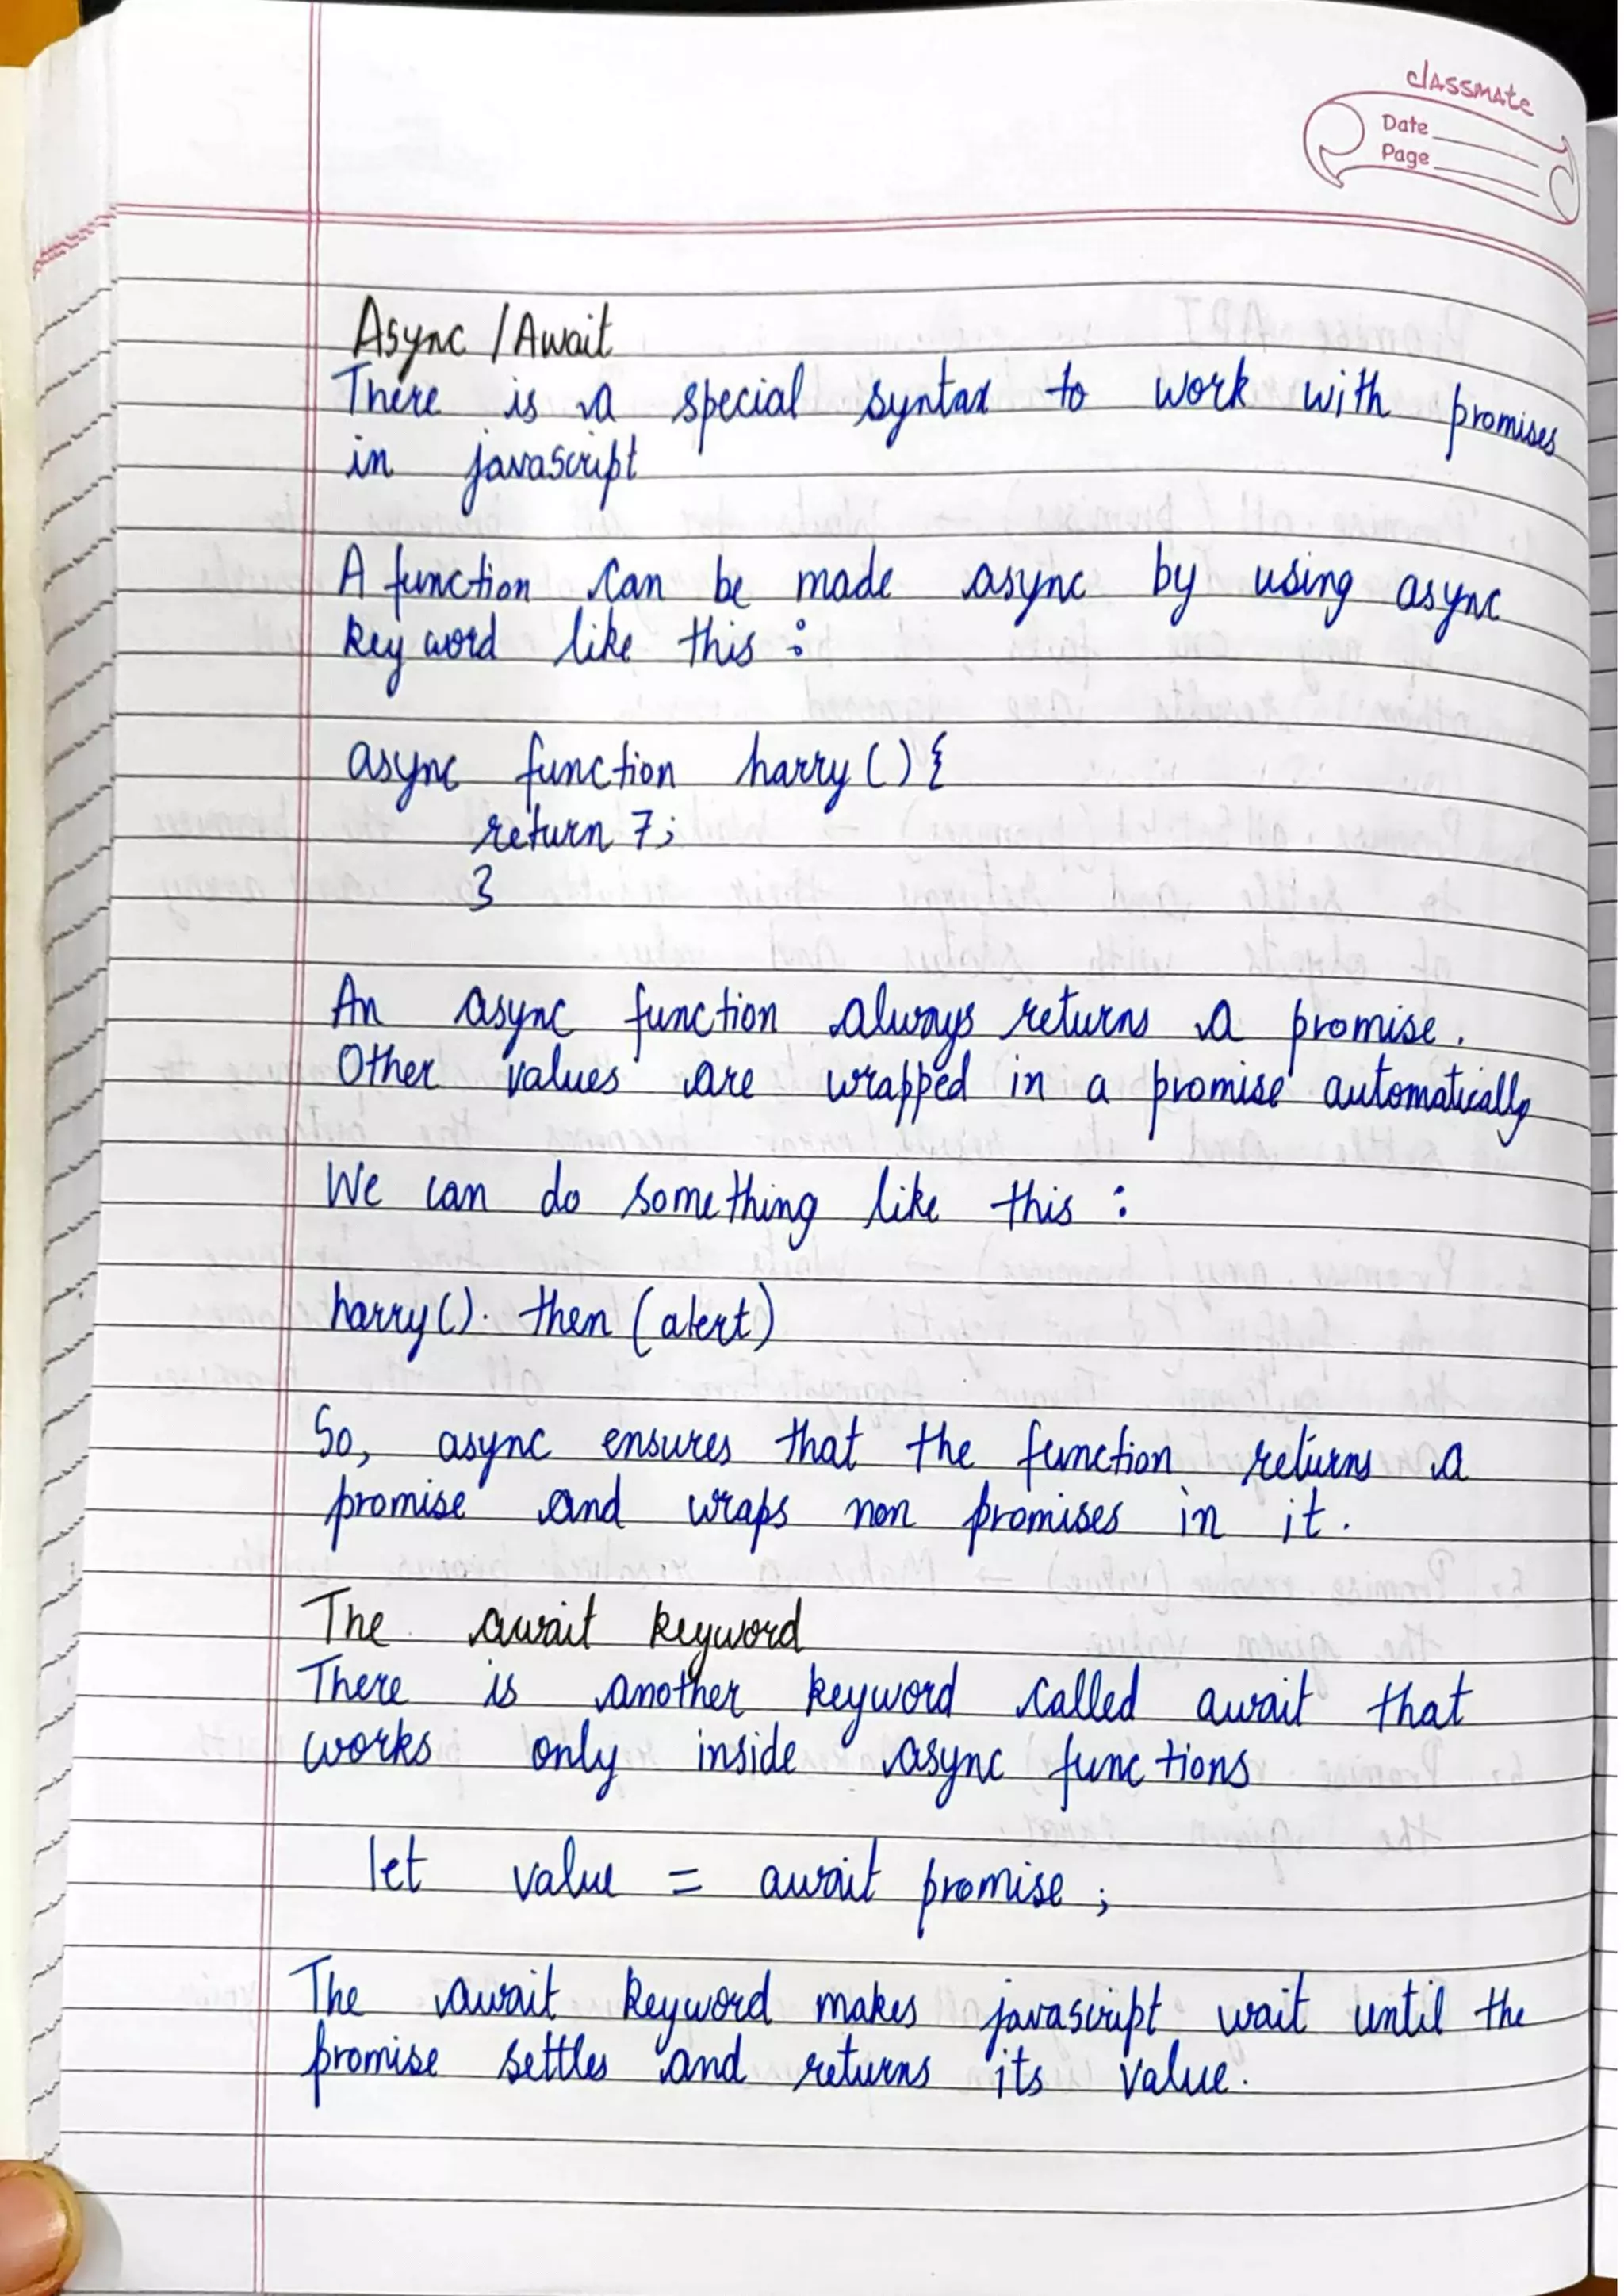 classmate
Date
Page
Async / Await
There is a special syntax to work with promises
in javascript
A function can be made async by using async
keyword like this :
async function harry() {
return 7;
}
An async function always returns a promise.
Other values are wrapped in a promise automatically
We can do something like this :
harry(). then (alert)
So, async ensures that the function returns a
promise and wraps non promises in it.
The await keyword
There is another keyword called await that
works only inside async functions
let value = await promise ;
The await keyword makes javascript wait until the
promise settles and returns its value.